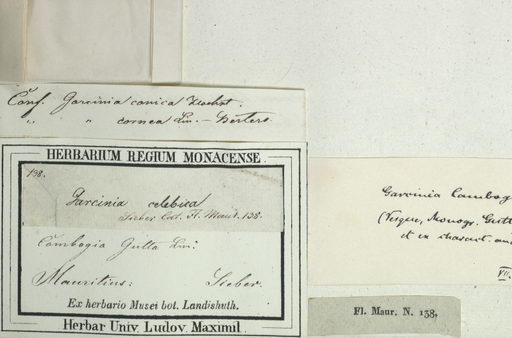 Conf. Garcinia conica
" " cornea Lin. —
HERBARIUM REGIUM MONACENSE.
138.
Garcinia celebica
Sieber Col. Fl. Maur. 138
Cambogia Gutta Lin:
Mauritius: Sieber.
Ex herbario Musei bot. Landishuth.
Herbar Univ. Ludov. Maximil.
Garcinia Cambog
(Vesque, Monogr. Gutt
et ex charact.
VII.
Fl. Maur. N. 138.